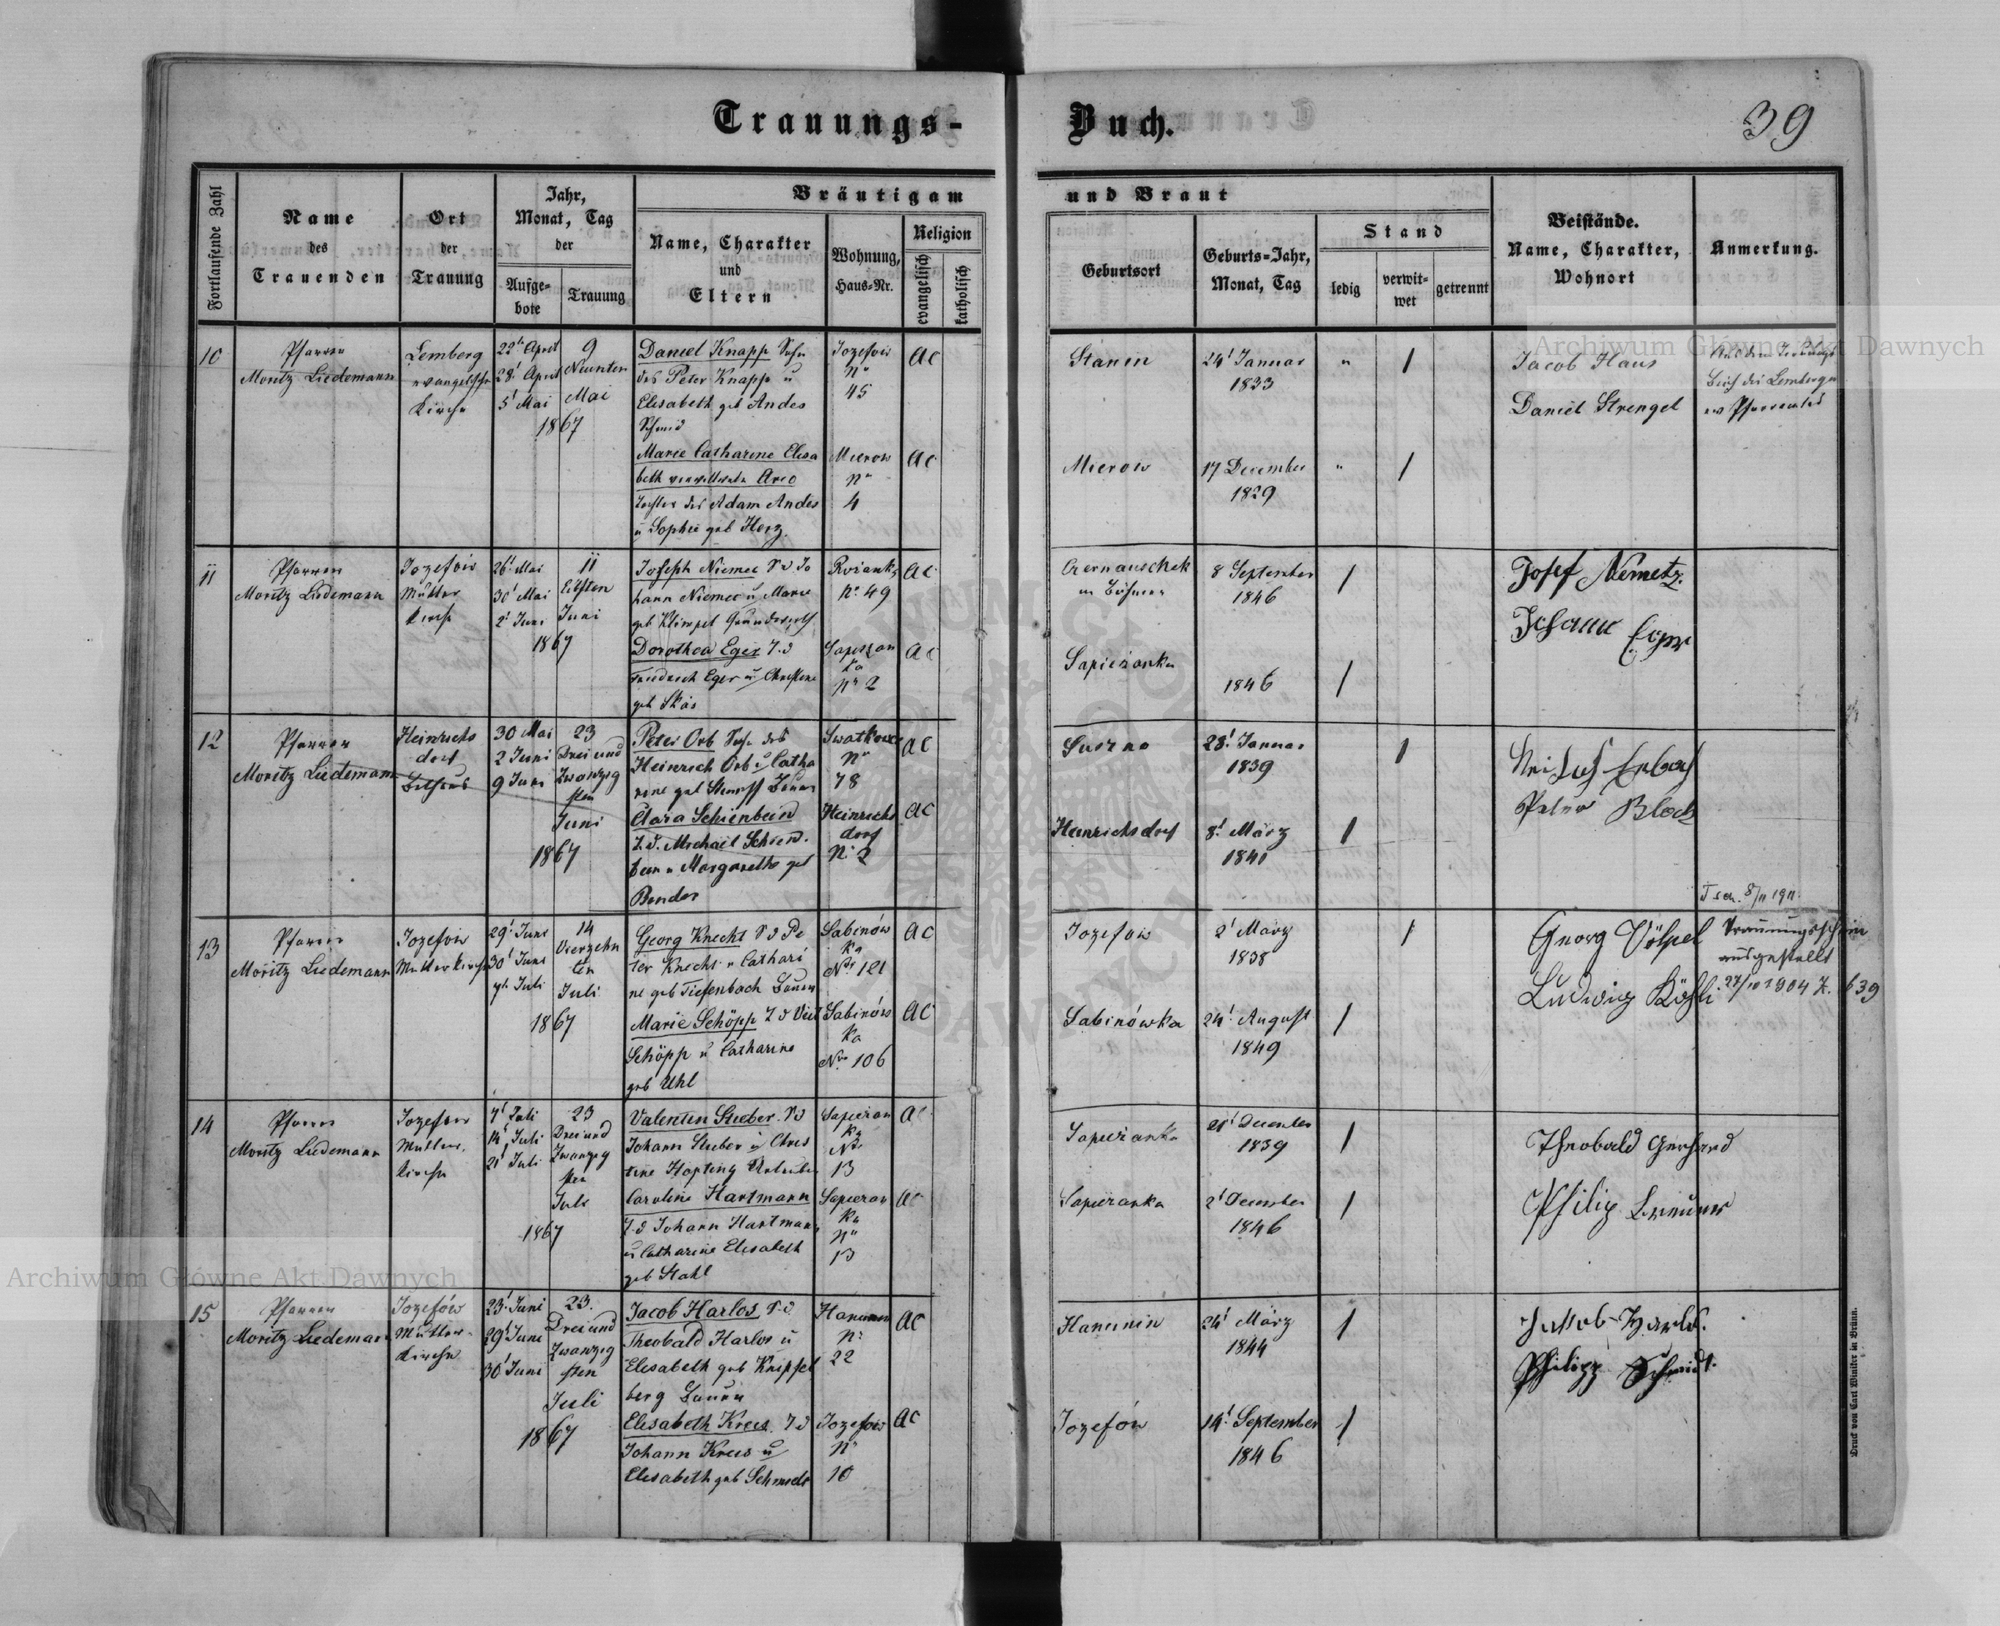 Trauungs-Buch.
39
Fortlaufende Zahl
Name
des
Trauenden
Ort
der
Trauung
Jahr,
Monat, Tag
der
Aufge-
bote
Trauung
Bräutigam und Braut
Name, Charakter
und
Eltern
Wohnung,
Haus-Nr.
Religion
evangelisch
katholisch
Geburtsort
Geburts-Jahr,
Monat, Tag
Stand
ledig
verwit-
wet
getrennt
Beistände.
Name, Charakter,
Wohnort
Anmerkung.
10
Pfarrer
Moritz Liedemann
Lemberg
evangelische
Kirche
22t April
28t April
5t Mai
9
Neunten
Mai
1867
Daniel Knapp Sohn
des Peter Knapp u
Elisabeth geb Andes
Schmid
Jozefow
No
45
AC
Marie Catharine Elisa
beth verwittwete
Tochter des Adam Andes
u Sophie geb Herz.
Mierow
No
4
AC
Stanin
24t Januar
1833
"
/
Mierow
17 December
1829
"
/
Jacob Haus
Daniel Strengel
11
Pfarrer
Moritz Liedemann
Jozefow
Mutter
Kirche
26t Mai
30t Mai
2t Juni
11
Eilften
Juni
1867
Joseph Niemec S d Jo
hann Niemec u Marie
geb Klimpel
No 49
AC
Dorothea Eger T d
Friedrich Eger u Christine
geb
Sapiezan
ka
No 2
AC
in Böhmen
8 September
1846
/
Sapiezanka
1846
/
Josef Nemetz.
Johann Eger
12
Pfarrer
Moritz Liedemann
Heinrichs
dorf
Bethaus
30 Mai
2 Juni
9 Juni
23
Dreiund
Zwanzig
sten
Juni
1867
Peter Orb Sohn des
Heinrich Orb u Catha
rine geb Stumpf Bauer
No
78
AC
Clara Schienbein
T. d. Michael Schien-
bein u Margarethe geb
Bender
Heinrichs
dorf
No 2
AC
28t Januar
1839
/
Heinrichsdorf
8t März
1841
/
Peter Bloch
13
Pfarrer
Moritz Liedemann
Jozefow
Mutterkirche
29t Juni
30t Juni
7t Juli
14
Vierzehn
ten
Juli
1867
Georg Knecht S d Pe
ter Knecht u Cathari
ne geb Tiefenbach Bauer
Sabinów
ka
No 121
AC
Marie Schöpp T d Veit
Schöpp u Catharine
geb Uhl
Sabinów
ka
No 106
AC
Jozefow
2t März
1838
/
Sabinówka
24t August
1849
/
Georg Völpel
Ludwig
Trauungsschein
ausgestellt
27/10 1904 Z. 639
14
Pfarrer
Moritz Liedemann
Jozefow
Mutter
Kirche
7t Juli
14t Juli
21t Juli
23
Dreiund
Zwanzig
sten
Juli
1867
Valentin Stueber S d
Johann Stueber u Chris
tine Hopting
Sapiezan
ka
No
13
AC
Caroline Hartmann
T d Johann Hartmann
u Catharine Elisabeth
geb Stahl
Sapiezan
ka
No
13
AC
Sapiezanka
21t December
1839
/
Sapiezanka
2t December
1846
/
Theobald Gerhard
Philip
15
Pfarrer
Moritz Liedemann
Jozefów
Mutter-
Kirche
23t Juni
29t Juni
30t Juni
23.
Dreiund
Zwanzig
sten
Juli
1867
Jacob Harlos S d
Theobald Harlos u
Elisabeth geb Knipfel
berg Bauer
Hanunin
No
22
AC
Elisabeth Kreis T d
Johann Kreis u
Elisabeth geb Schmidt
Jozefow
No
10
AC
Hanunin
24t März
1844
/
Jozefów
14t September
1846
/
Jakob Harlos.
Philipp Schmidt.
Druck von Carl Winiker in Brünn.
Archiwum Główne Akt Dawnych
Archiwum Główne Akt Dawnych